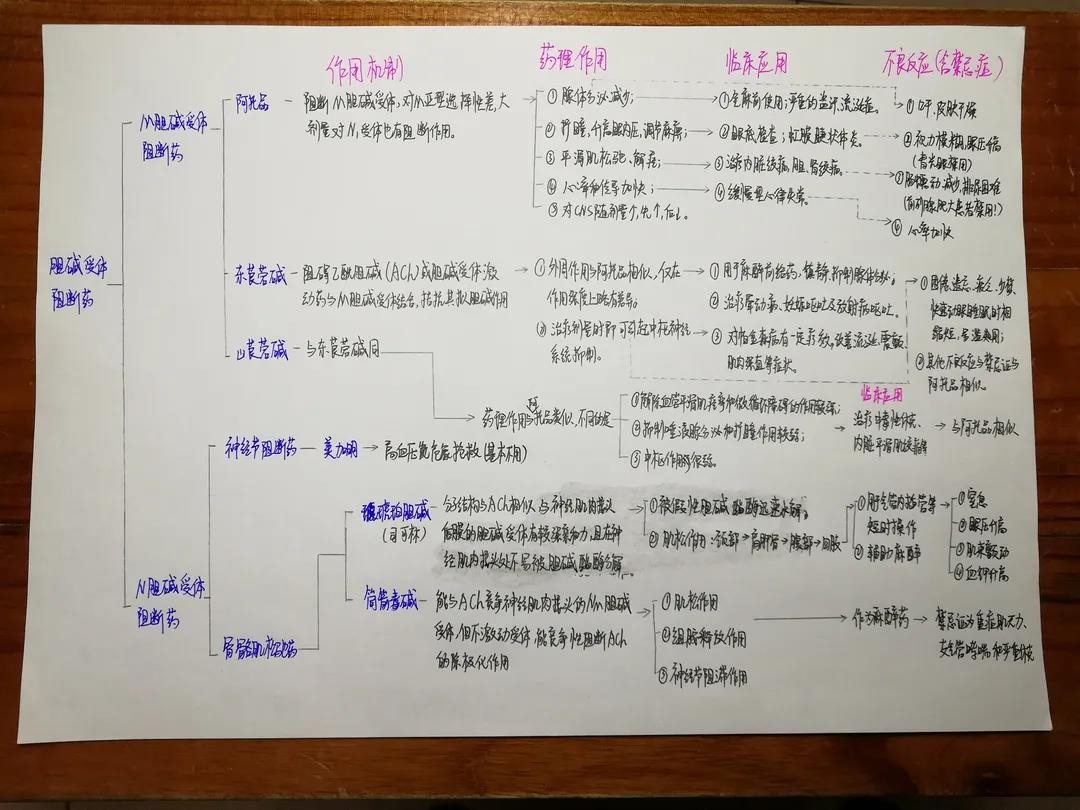 作用机制
药理作用
临床应用
不良反应(含禁忌症)
胆碱受体
阻断药
M胆碱受体
阻断药
阿托品
阻断M胆碱受体,对M亚型选择性差,大
剂量对N1受体也有阻断作用。
①腺体分泌减少;
②扩瞳,升高眼内压,调节麻痹;
③平滑肌松驰、解痉;
④心率和传导加快;
⑤对CNS随剂量↑,先↑,后↓。
①全麻前使用;严重的盗汗、流涎症。
②眼底检查;虹膜睫状体炎。
③治疗内脏绞痛,胆、肾绞痛。
④缓慢型心律失常。
①口干、皮肤干燥
②视力模糊,眼压升高
(青光眼禁用)
③肠蠕动减少,排尿困难
(前列腺肥大患者禁用!)
④心率加快
东莨菪碱
阻碍乙酰胆碱(ACh)或胆碱受体激
动药与M胆碱受体结合,拮抗其拟胆碱作用
①外周作用与阿托品相似,仅在
作用强度上略有差异。
②治疗剂量时即可引起中枢神经
系统抑制。
①用于麻醉前给药,镇静、抑制腺体分泌。
②治疗晕动病、妊娠呕吐及放射病呕吐。
③对帕金森病有一定疗效,改善流涎、震颤、
肌肉强直等症状
①困倦、遗忘、疲乏、少梦、
快速动眼睡眠时相
缩短,
②其他不良反应与禁忌证与
阿托品相似。
山莨菪碱
与东莨菪碱同
药理作用与阿托品类似,不同的是
①解除血管平滑肌痉挛和微循环障碍的作用较强;
②抑制唾液腺分泌和扩瞳作用较弱;
③中枢作用很弱。
临床应用
治疗中毒性休克、
内脏平滑肌绞痛等
与阿托品相似
N胆碱受体
阻断药
神经节阻断药
美加明
高血压危象抢救(基本不用)
骨骼肌松弛药
琥珀胆碱
(司可林)
分子结构与ACh相似,与神经肌肉接头
后膜的胆碱受体有较强亲和力,且在神
经肌肉接头处不易被胆碱酯酶分解
①被假性胆碱酯酶迅速水解。
②肌松作用:颈部→肩胛骨→腹部→四肢
①用气管内插管等
短时操作
②辅助麻醉
①窒息
②眼压升高
③肌束颤动
④血钾升高
筒箭毒碱
能与ACh竞争神经肌肉接头的Nm胆碱
受体,但不激动受体,能竞争性阻断ACh
的除极化作用
①肌松作用
②组胺释放作用
③神经节阻滞作用
作为麻醉药
禁忌证为重症肌无力、
支气管哮喘和严重休克